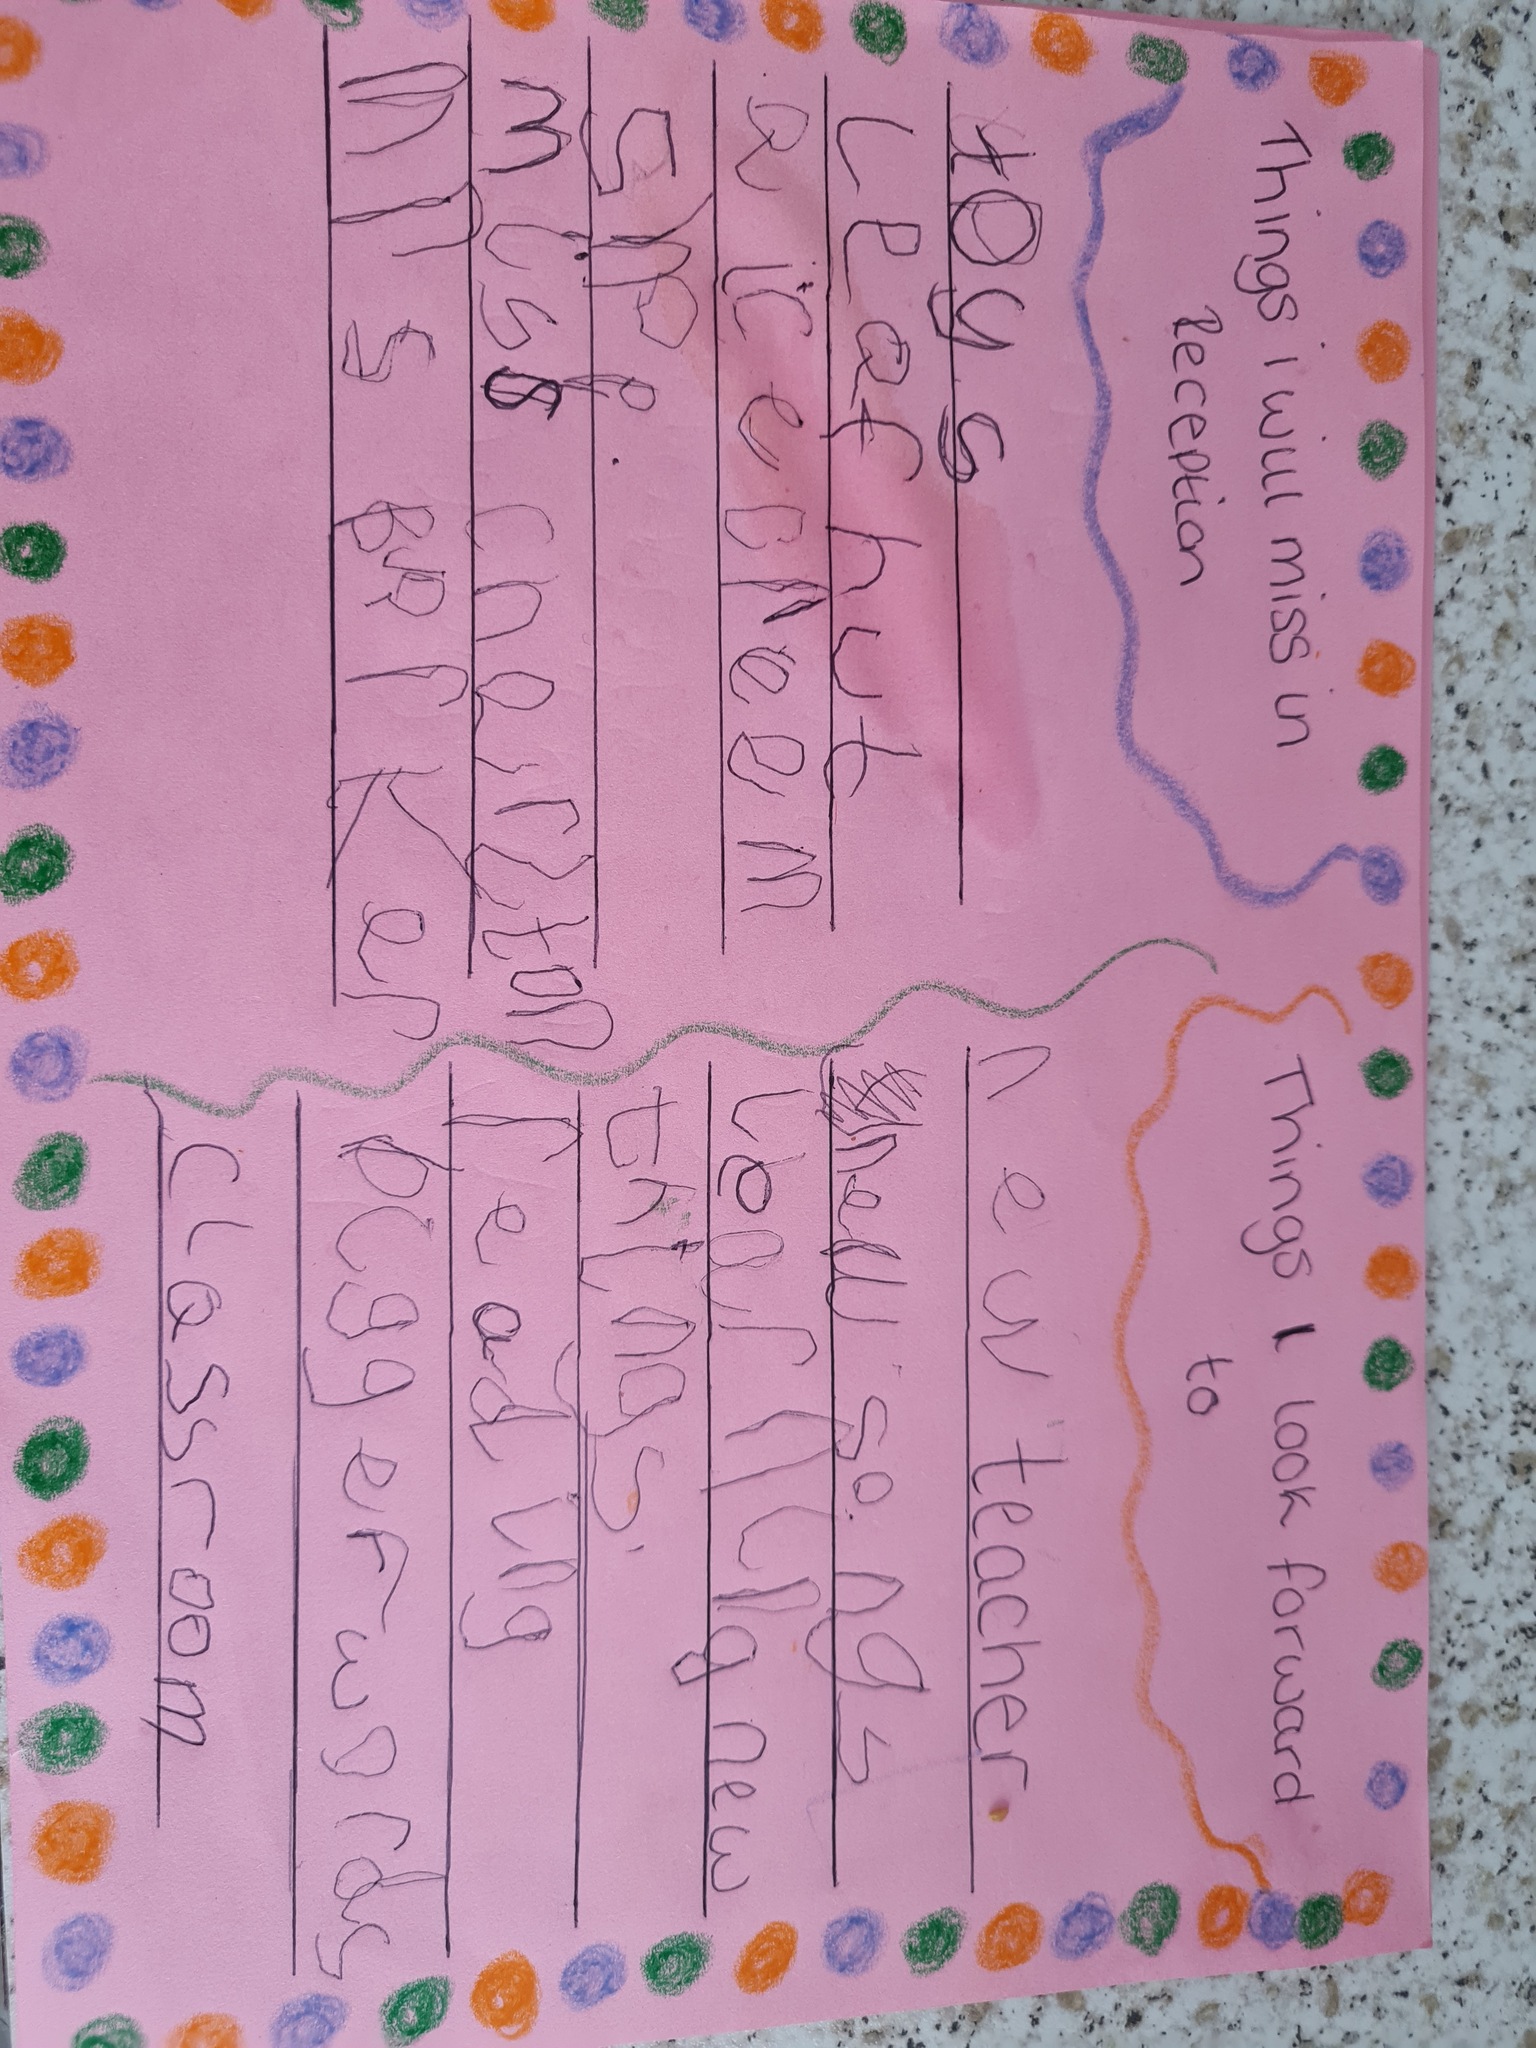 Things i will miss in
Reception
toys
Leaf hut
a ice cream
shop.
miss cheriton
mrs Burker
Things I look forward
to
new teacher
new songs
Learning new
things.
reading
bigger words
classroom